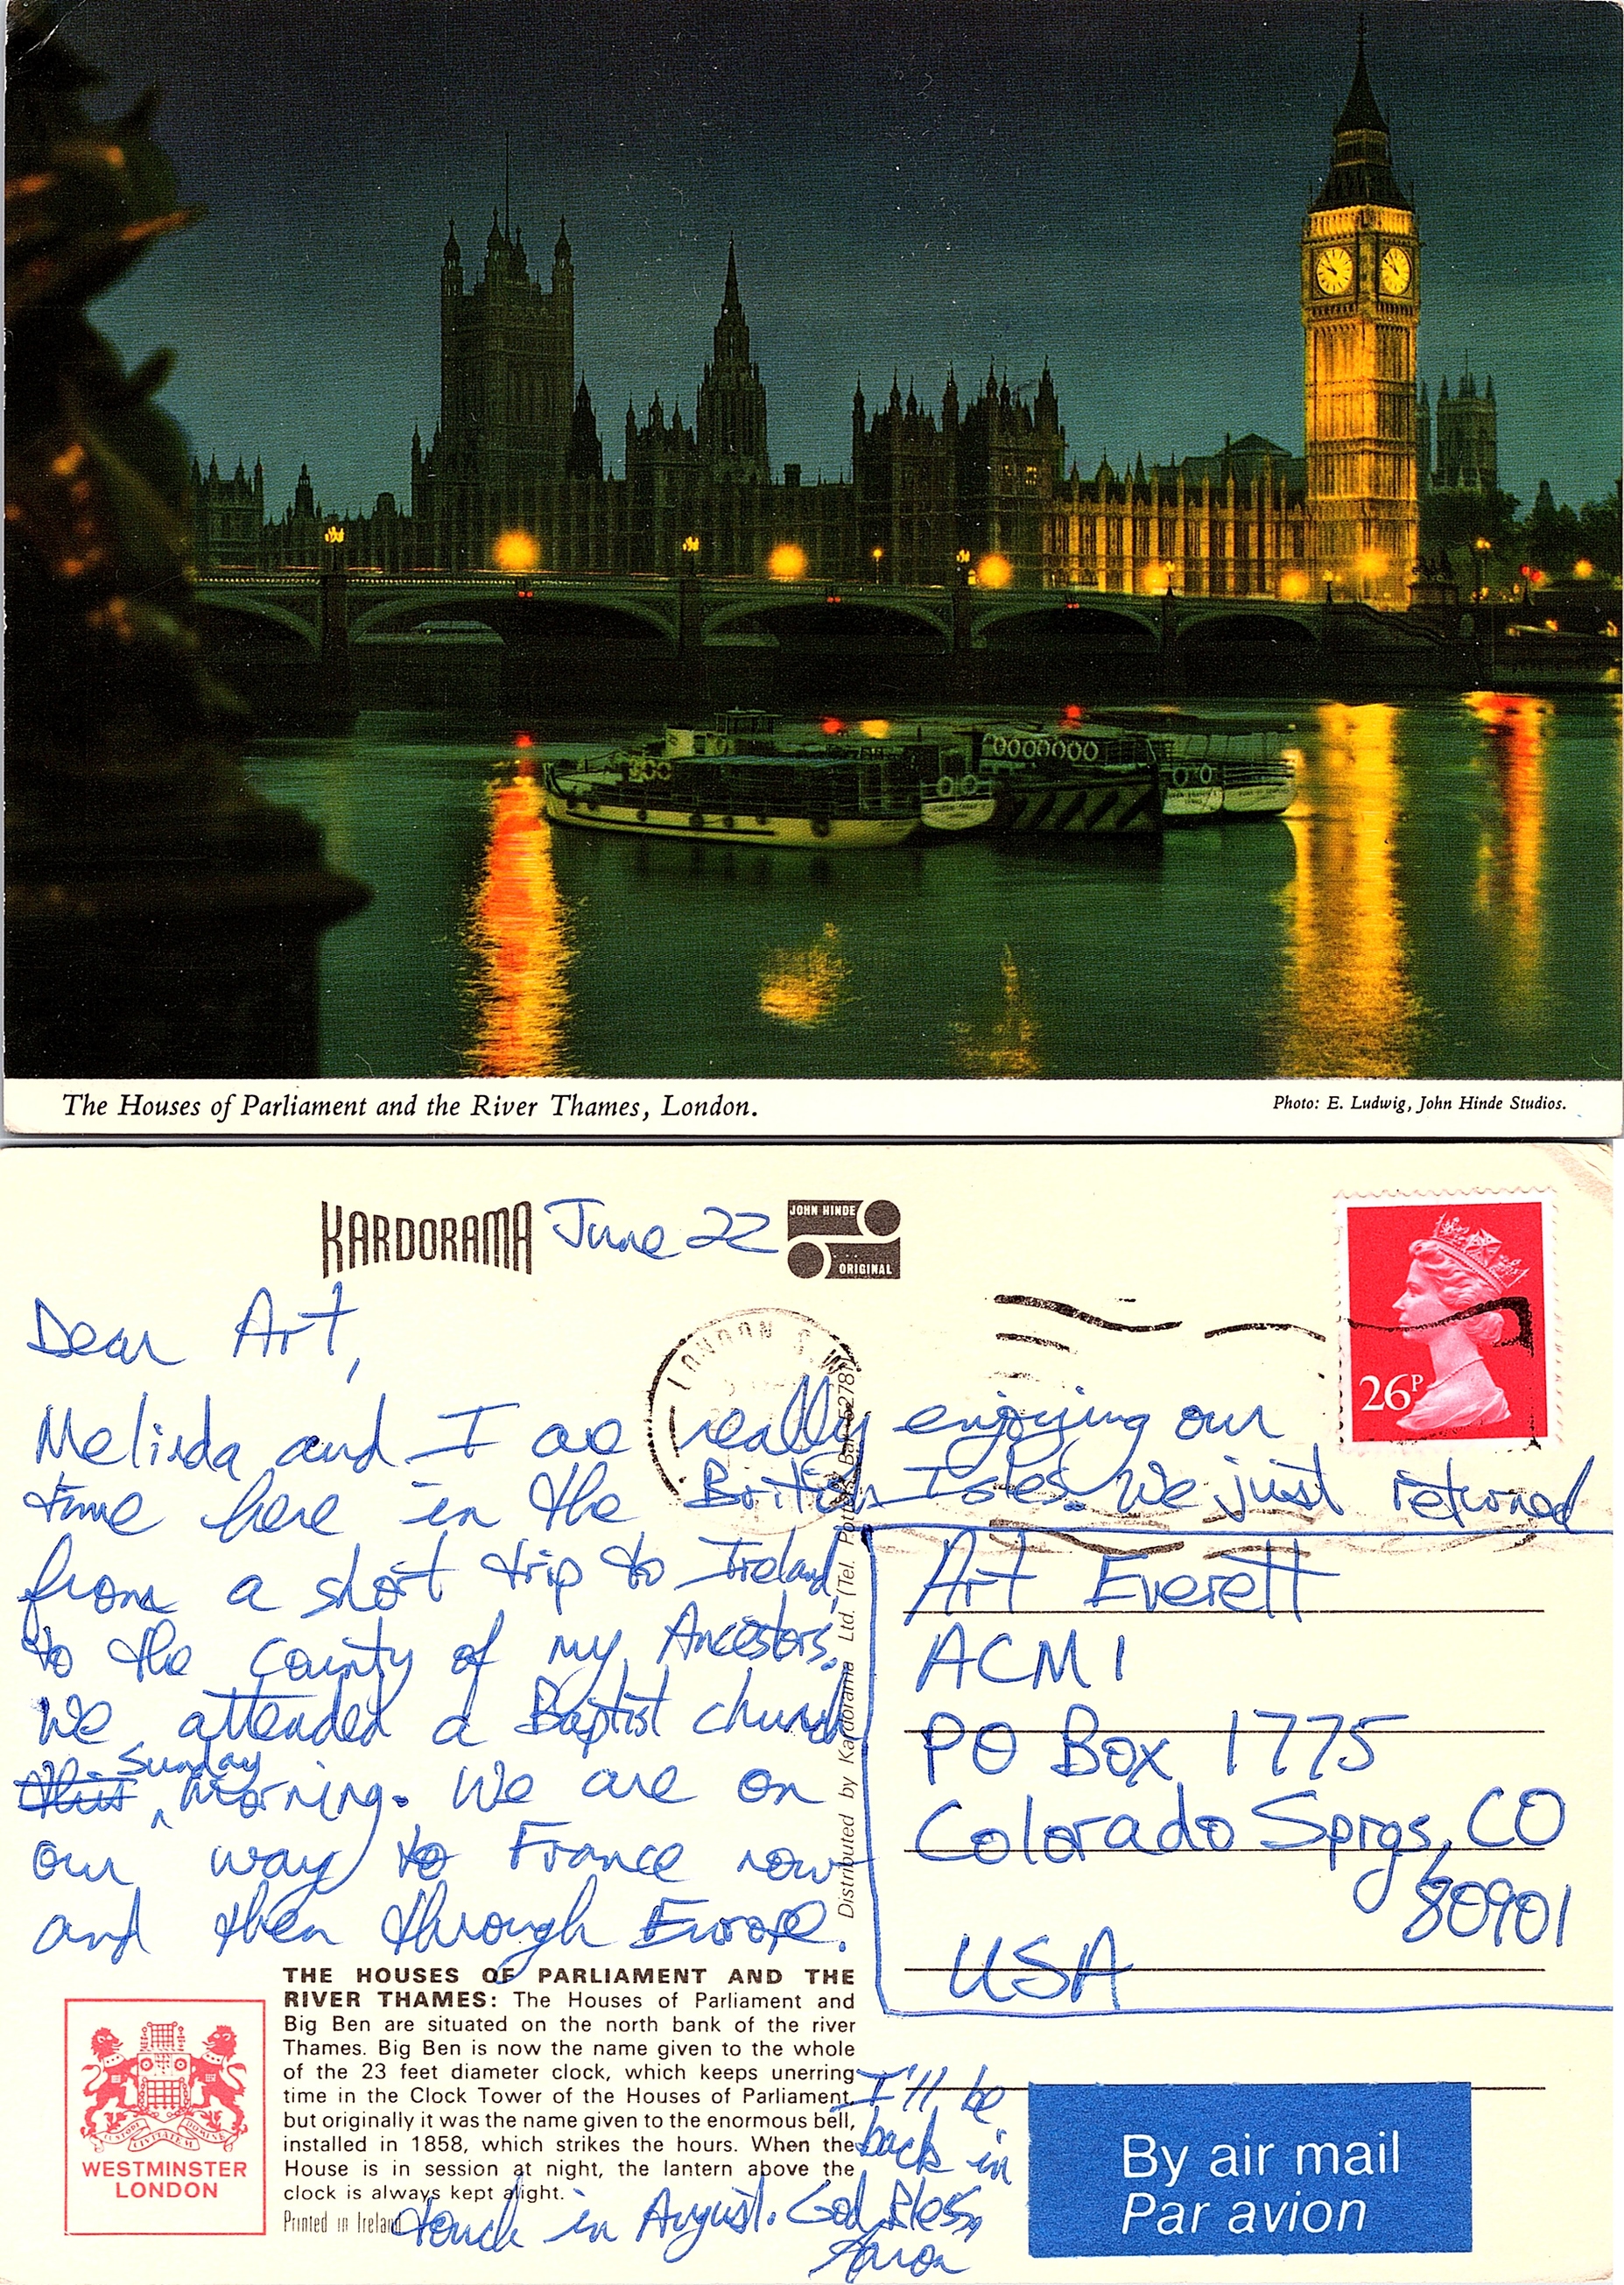 The Houses of Parliament and the River Thames, London.
Photo: E. Ludwig, John Hinde Studios.
KARDORAMA
June 22
JOHN HINDE
ORIGINAL
26P
LONDON S.W.
Dear Art,
Melinda and I are really enjoying our
time here in the British Isles. We just returned
from a short trip to Ireland,
to the county of my Ancestors.
We attended a Baptist church
this Sunday morning. We are on
our way to France now
and then through Europe.
I'll be
back in
touch in August. God Bless,
Aaron
Distributed by Kardorama Ltd. (Tel. Potters Bar 52781)
Art Everett
ACM 1
PO Box 1775
Colorado Sprgs, CO
80901
USA
THE HOUSES OF PARLIAMENT AND THE
RIVER THAMES: The Houses of Parliament and
Big Ben are situated on the north bank of the river
Thames. Big Ben is now the name given to the whole
of the 23 feet diameter clock, which keeps unerring
time in the Clock Tower of the Houses of Parliament,
but originally it was the name given to the enormous bell,
installed in 1858, which strikes the hours. When the
House is in session at night, the lantern above the
clock is always kept alight.
Printed in Ireland
WESTMINSTER
LONDON
By air mail
Par avion